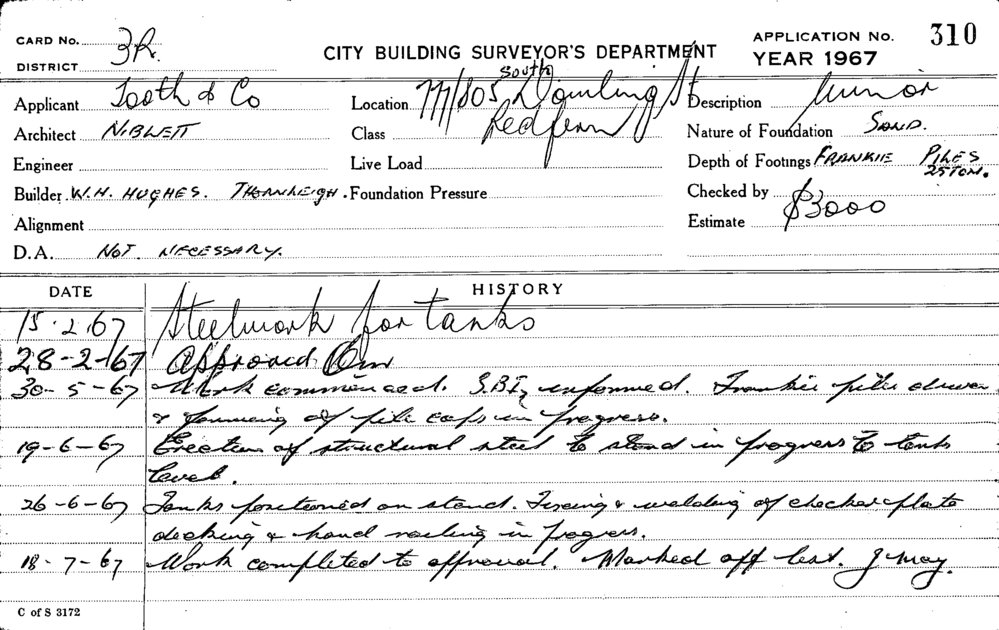 CARD No. 3R.
DISTRICT
CITY BUILDING SURVEYOR'S DEPARTMENT
APPLICATION No. 310
YEAR 1967
Applicant Tooth & Co
Architect NIBLETT
Engineer
Builder W.H. HUGHES. THORNLEIGH.
Alignment
D.A. NOT NECESSARY.
South
Location 777/805 Dowling St
Class Redfern
Live Load
Foundation Pressure
Description Minor
Nature of Foundation SAND.
Depth of Footings FRANKIE PILES
25 TON.
Checked by
Estimate $3000
DATE HISTORY
15.2.67 Steelwork for tanks
28-2-67 Approved
30-5-67 Work commenced. S.B.I. informed. Frankie piles driven
& forming of pile caps in progress.
19-6-67 Erection of structural steel to stand in progress to tank
level.
26-6-67 Tanks positioned on stand. Fixing & welding of checker plate
decking & hand railing in progress.
18-7-67 Work completed to approval. Marked off list. J May.
C of S 3172